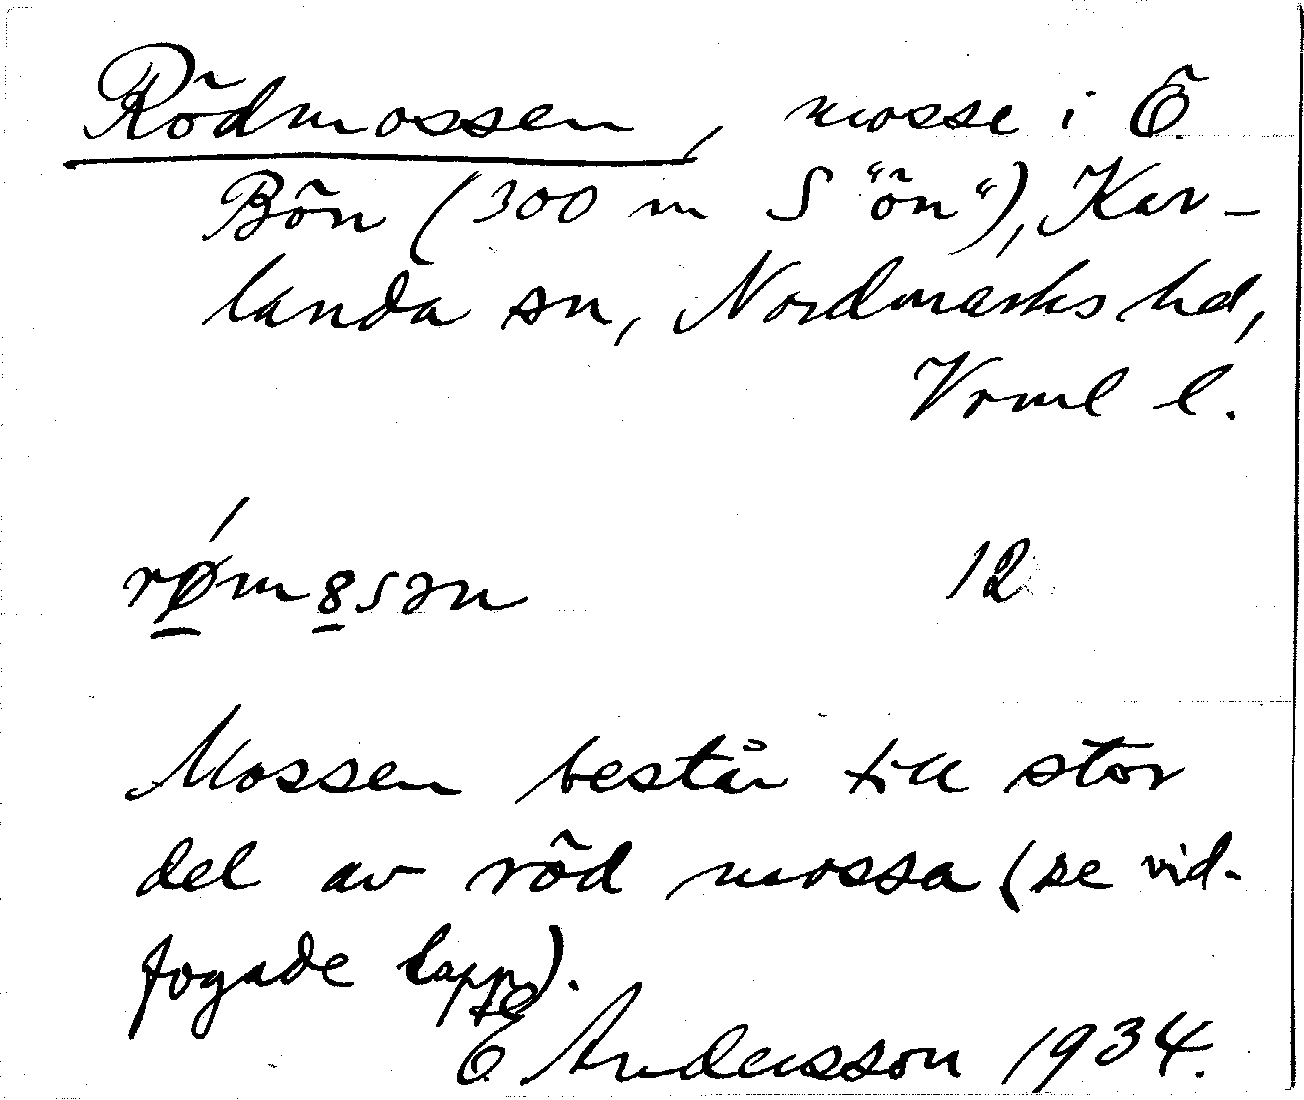 Rödmossen, mosse i Ö
Bön (300 m S "ön"), Kar-
landa sn, Nordmarks hd,
Vrml l.
12
Mossen består till stor
del av röd mossa (se vid-
fogade lapp).
E Andersson 1934.